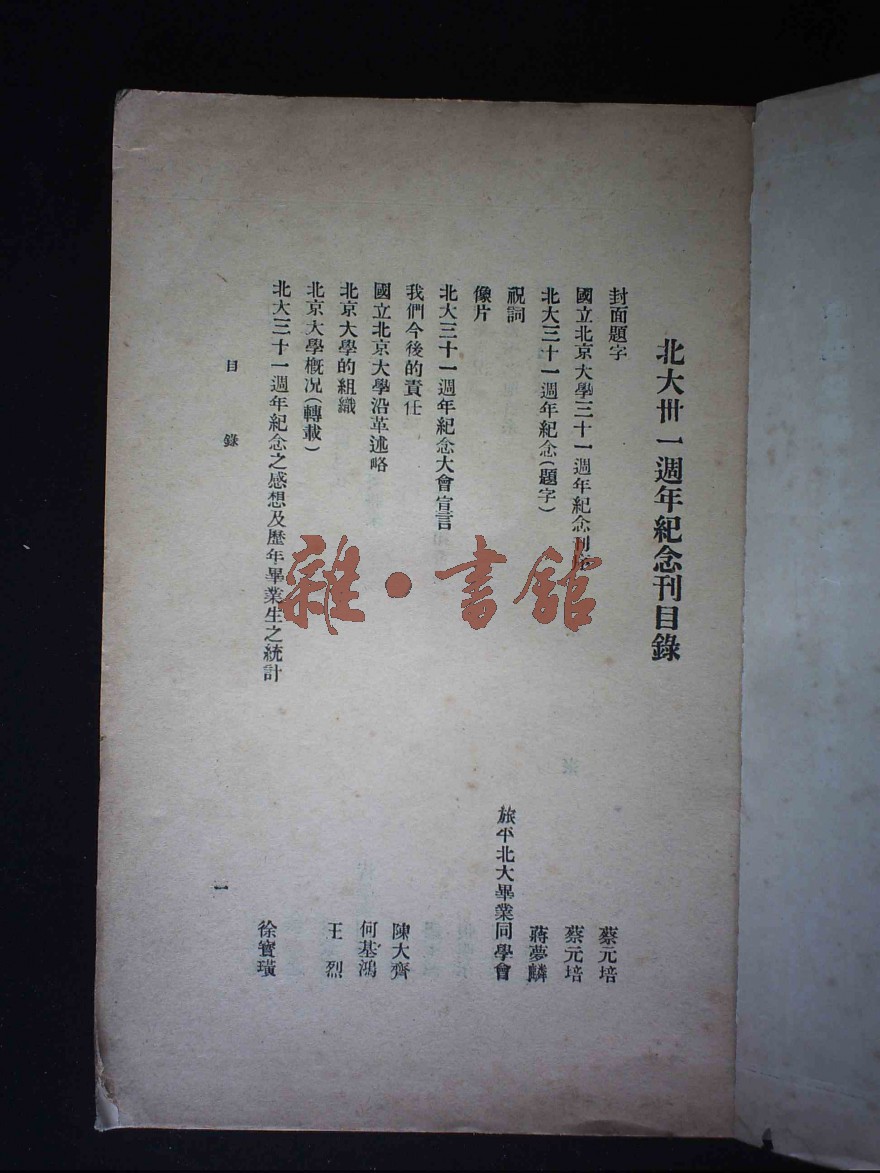 北大卅一週年紀念刊目錄
封面題字 蔡元培
國立北京大學三十一週年紀念刊 蔡元培
北大三十一週年紀念(題字) 蔣夢麟
祝詞 旅平北大畢業同學會
像片
北大三十一週年紀念大會宣言
我們今後的責任 陳大齊
國立北京大學沿革述略 何基鴻
北京大學的組織 王烈
北京大學概況(轉載)
北大三十一週年紀念之感想及歷年畢業生之統計 徐寶璜
目錄 一
雜·書館